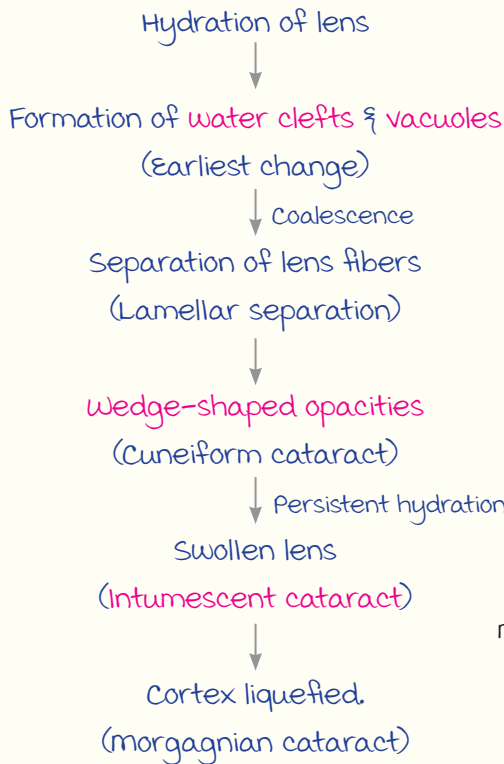 Hydration of lens
Formation of water clefts & vacuoles
(Earliest change)
Coalescence
Separation of lens fibers
(Lamellar separation)
Wedge-shaped opacities
(Cuneiform cataract)
Persistent hydration
Swollen lens
(Intumescent cataract)
Cortex liquefied.
(morgagnian cataract)